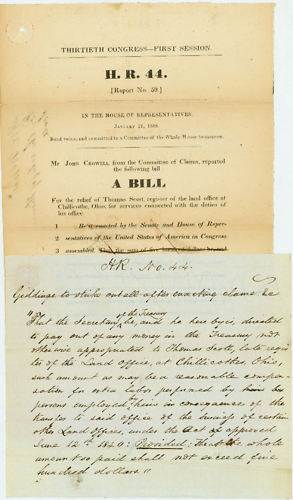 THIRTIETH CONGRESS—FIRST SESSION.
H. R. 44.
[Report No. 59.]
IN THE HOUSE OF REPRESENTATIVES.
JANUARY 12, 1848.
Read twice, and committed to a Committee of the Whole House to-morrow.
Mr. JOHN CROWELL, from the Committee of Claims, reported
the following bill
A BILL
For the relief of Thomas Scott, register of the land office at
Chillicothe, Ohio, for services connected with the duties of
his office.
1 Be it enacted by the Senate and House of Repre-
2 sentatives of the United States of America in Congress
3 assembled, That the
H.R. No. 44.
Giddings to strike out all after enacting clause &c
"That the Secretary of the Treasury be, and he hereby is, directed
to pay out of any money in the Treasury not
otherwise appropriated to Thomas Scott, late regis-
ter of the Land Office, at Chillicothe, Ohio,
such amount as may be a reasonable compen-
sation for labor performed by him or
persons employed by him in consequence of the
transfer to said office of the business of certain
other Land Offices, under the Act approved
June 12th 1840: Provided: That the whole
amount so paid shall not exceed five
hundred dollars"